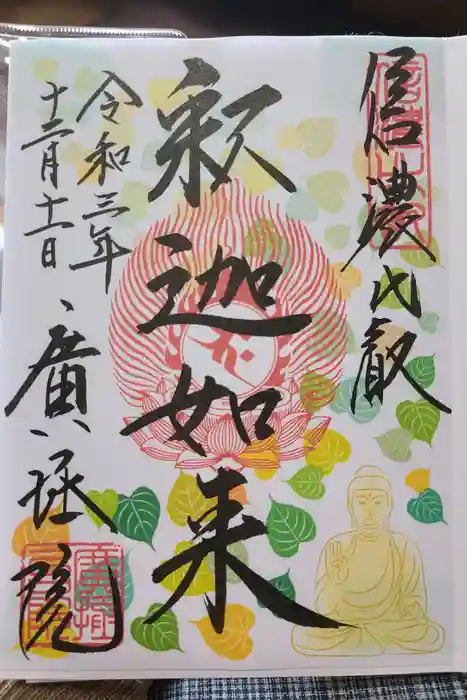 信濃比叡
釈迦如来
令和三年
十二月十一日
廣拯院